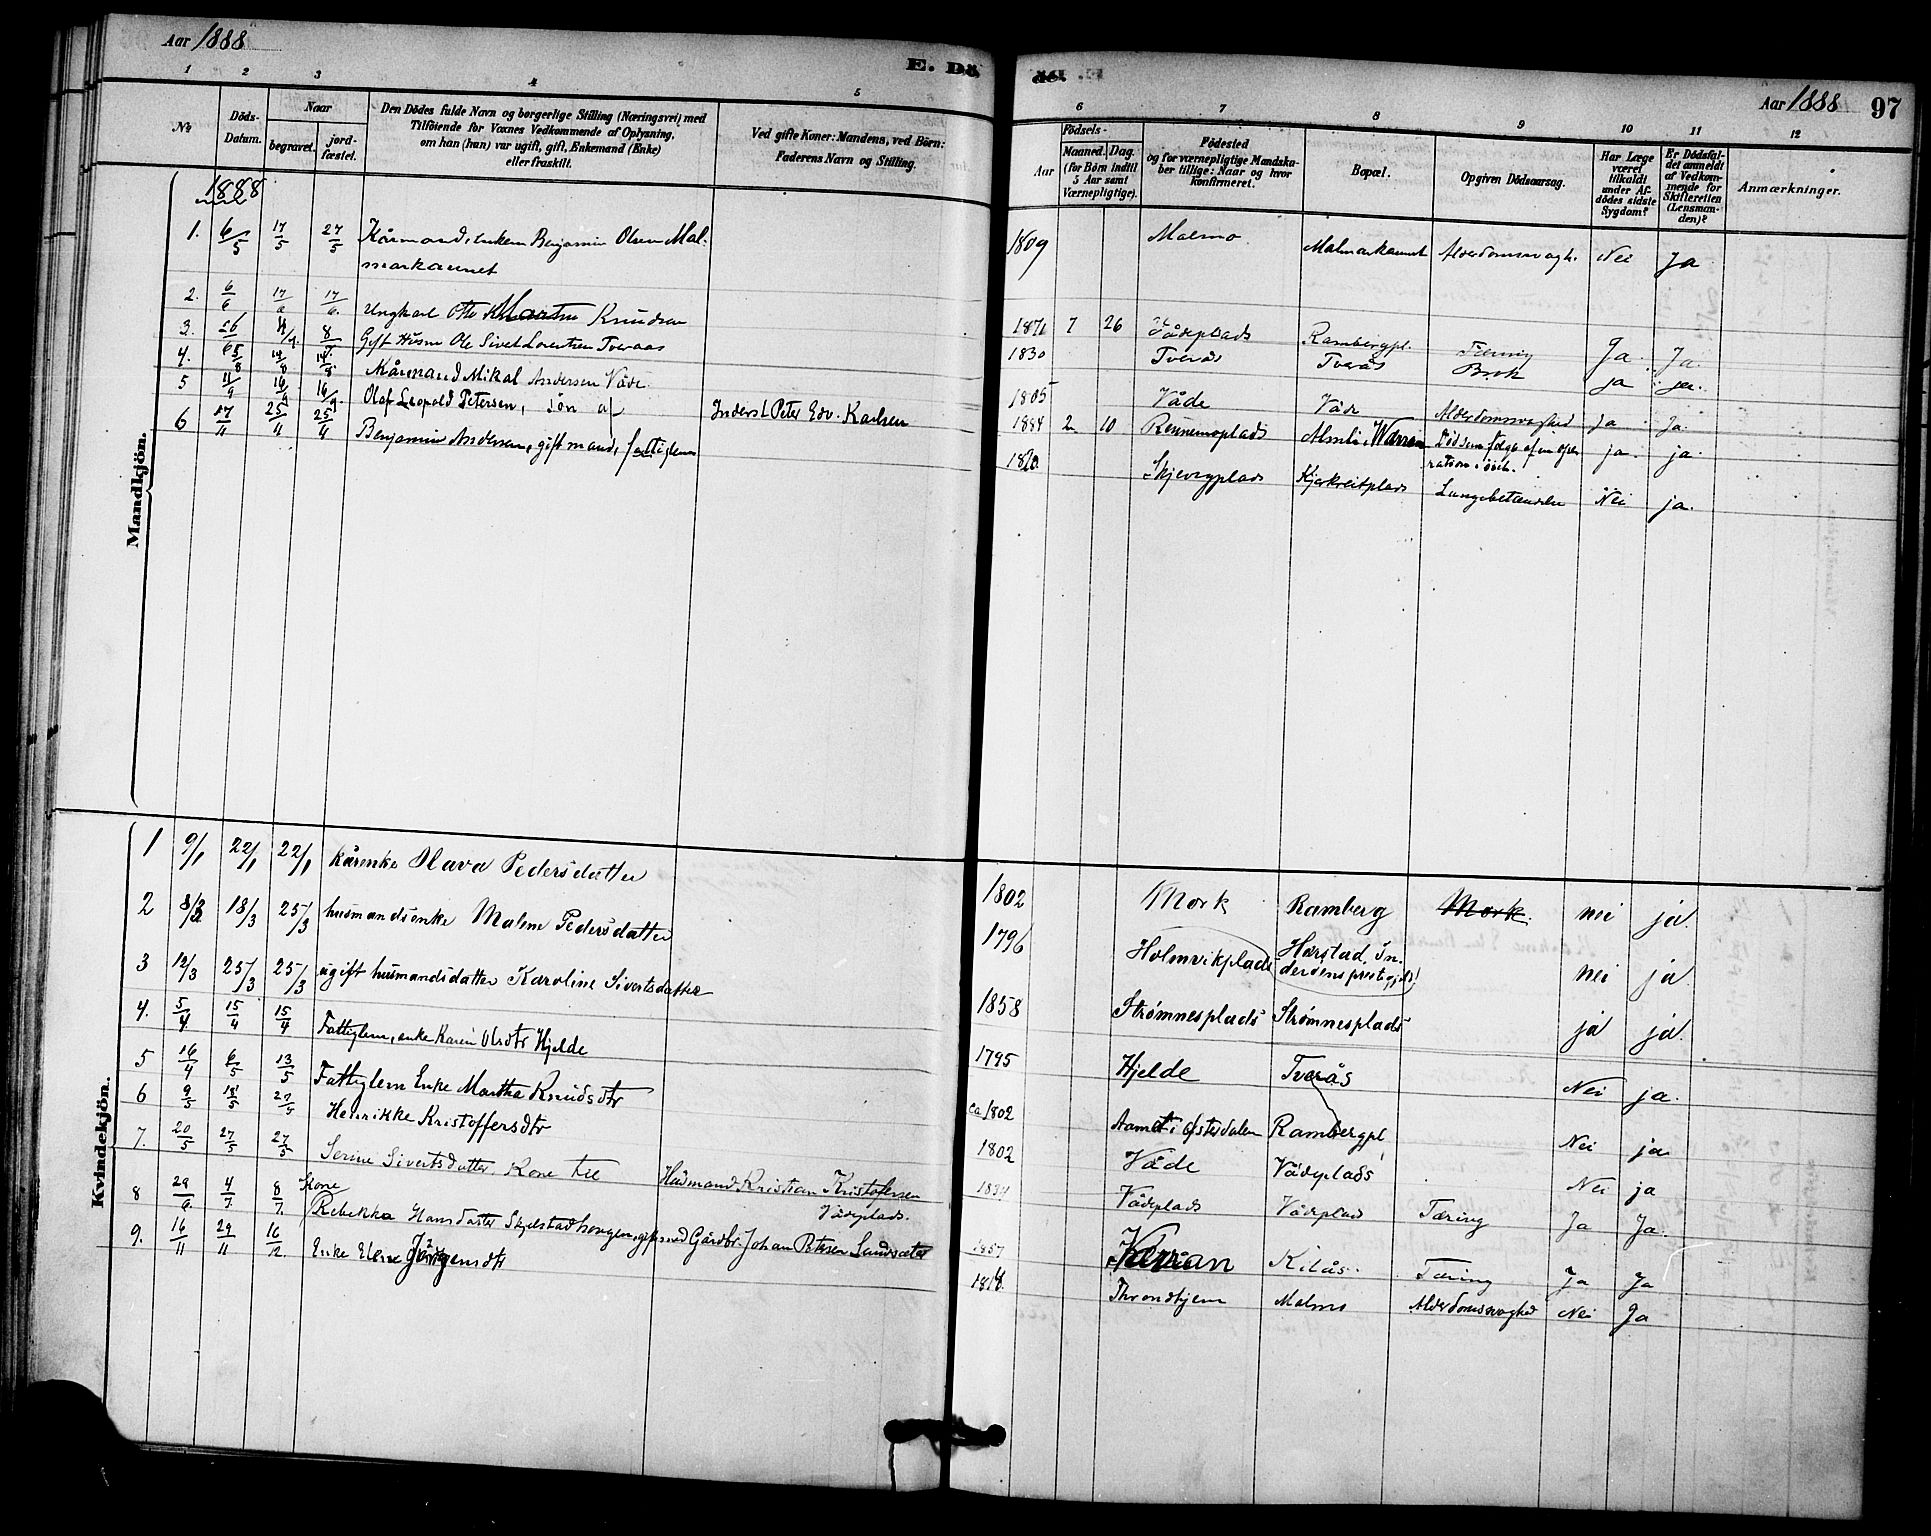 Aar 1888
E. Dö
de.
Aar 1888 97
1 2 3 4 5 6 7 8 9 10 11 12
No
Döds-
Datum.
Naar
begravet.
jord-
fæstet.
Den Dödes fulde Navn og borgerlige Stilling (Næringsvei) med
Tilföiende for Voxnes Vedkommende af Oplysning,
om han (hun) var ugift, gift, Enkemand (Enke)
eller fraskilt.
Ved gifte Koner: Mandens, ved Börn:
Faderens Navn og Stilling.
Födsels-
Aar
Maaned. Dag.
(for Börn indtil
5 Aar samt
Værnepligtige).
Födested
og for værnepligtige Mandska-
ber tillige: Naar og hvor
konfirmeret.
Bopæl.
Opgiven Dödsaarsag.
Har Læge
været
tilkaldt
under Af-
dödes sidste
Sygdom?
Er Dödsfal-
det anmeldt
af Vedkom-
mende for
Skifteretten
(Lensman-
den)?
Anmærkninger.
Mandkjön.
1888
1. 6/5 17/5 27/5 Kårmand, enkem Benjamin Olsen Mal- 1809 Malmo Malmarkaunet Alderdomssvagh. Nei Ja
markaunet
2. 6/6 17/6 17/6 Ungkarl Otto Knudsen 7 26 Vådeplads Rambergpl. Tæring Ja Ja.
3. 26 8 Gift Husm Ole Sivert Lorentsen Tveraas 1830 Tverås Brok ja ja.
4. 5/8 14/8 14/8 Kårmand Mikal Andersen Våde 1805 Våde Våde Alderdomssvaghed Ja Ja.
5 11/9 16/9 16/9 Olaf Leopold Petersen, søn af Inderst Peter Edv. Karlsen 1884 2 10 Rennemoplads Warran Død som følge af en ope-
ration i ja. ja.
6 17/11 25/11 25/11 Benjamin Andersen, gift mand, fattiglem Skjevegplads Kjerkreitplads Lungebetændelse Nei ja.
Kvindekjön.
1 9/1 22/1 22/1 kårenke Olava Pedersdatter 1802 Mork Ramberg Mork. nei ja.
2 8/3 18/3 25/3 husmandsenke Malene Pedersdatter 1796 Holmvikplads Harstad, In-
derøens prestegjeld! nei ja
3 12/3 25/3 25/3 ugift husmandsdatter Karoline Sivertsdatter 1858 Strømnesplads Strømnesplads ja ja.
4. 5/4 15/4 15/4 Fattiglem, enke Karen Olsdtr Hjelde 1795 Hjelde Tverås Nei ja.
5 16/4 6/5 13/5 Fattiglem Enke Martha Knudsdtr ca 1802 Aamot i Østerdalen Rambergpl Nei ja
6 9/5 18/5 27/5 Henrikke Kristoffersdtr 1802 Våde Vådeplads Nei ja
7. 20/5 27/5 27/5 Serine Sivertsdatter, Kone til Husmand Kristian Kristofersen
Vådeplads. 1834 Vådeplads Vådeplads Tæring Ja Ja.
8 29/6 4/7 8/7 Kone
Rebekka Hansdatter Skjelstadhaugen, gift med Gårdbr. Johan Petersen Sundsæter 1857 Verran Kilås Tæring Ja Ja
9. 16/11 29/11 16/12 Enke Elene Jørgensdtr Throndhjem Malmo Alderdomssvaghed Nei Ja